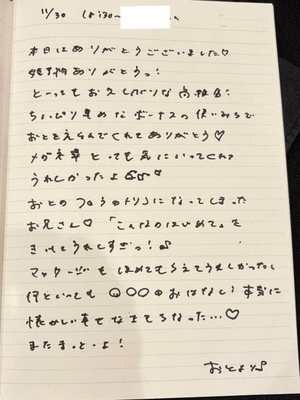 11/30
本日はありがとうございました♡
ありがとうっ!
とーってもお久しぶりな
ちょっぴり早めなボーナスの使いみちで
おとをえらんでくれてありがとう♡
メガネ姿とっても気にいってくれて
うれしかったよ
おとのフロうのトリコになってしまった
お兄さん♡「こんなのはじめて」を
きけてうれしすぎっ!
マッサージもほめてもらえてうれしかったし
何といっても〇〇〇のおはなし!
懐かしい
またまってるよ!
おとより♪